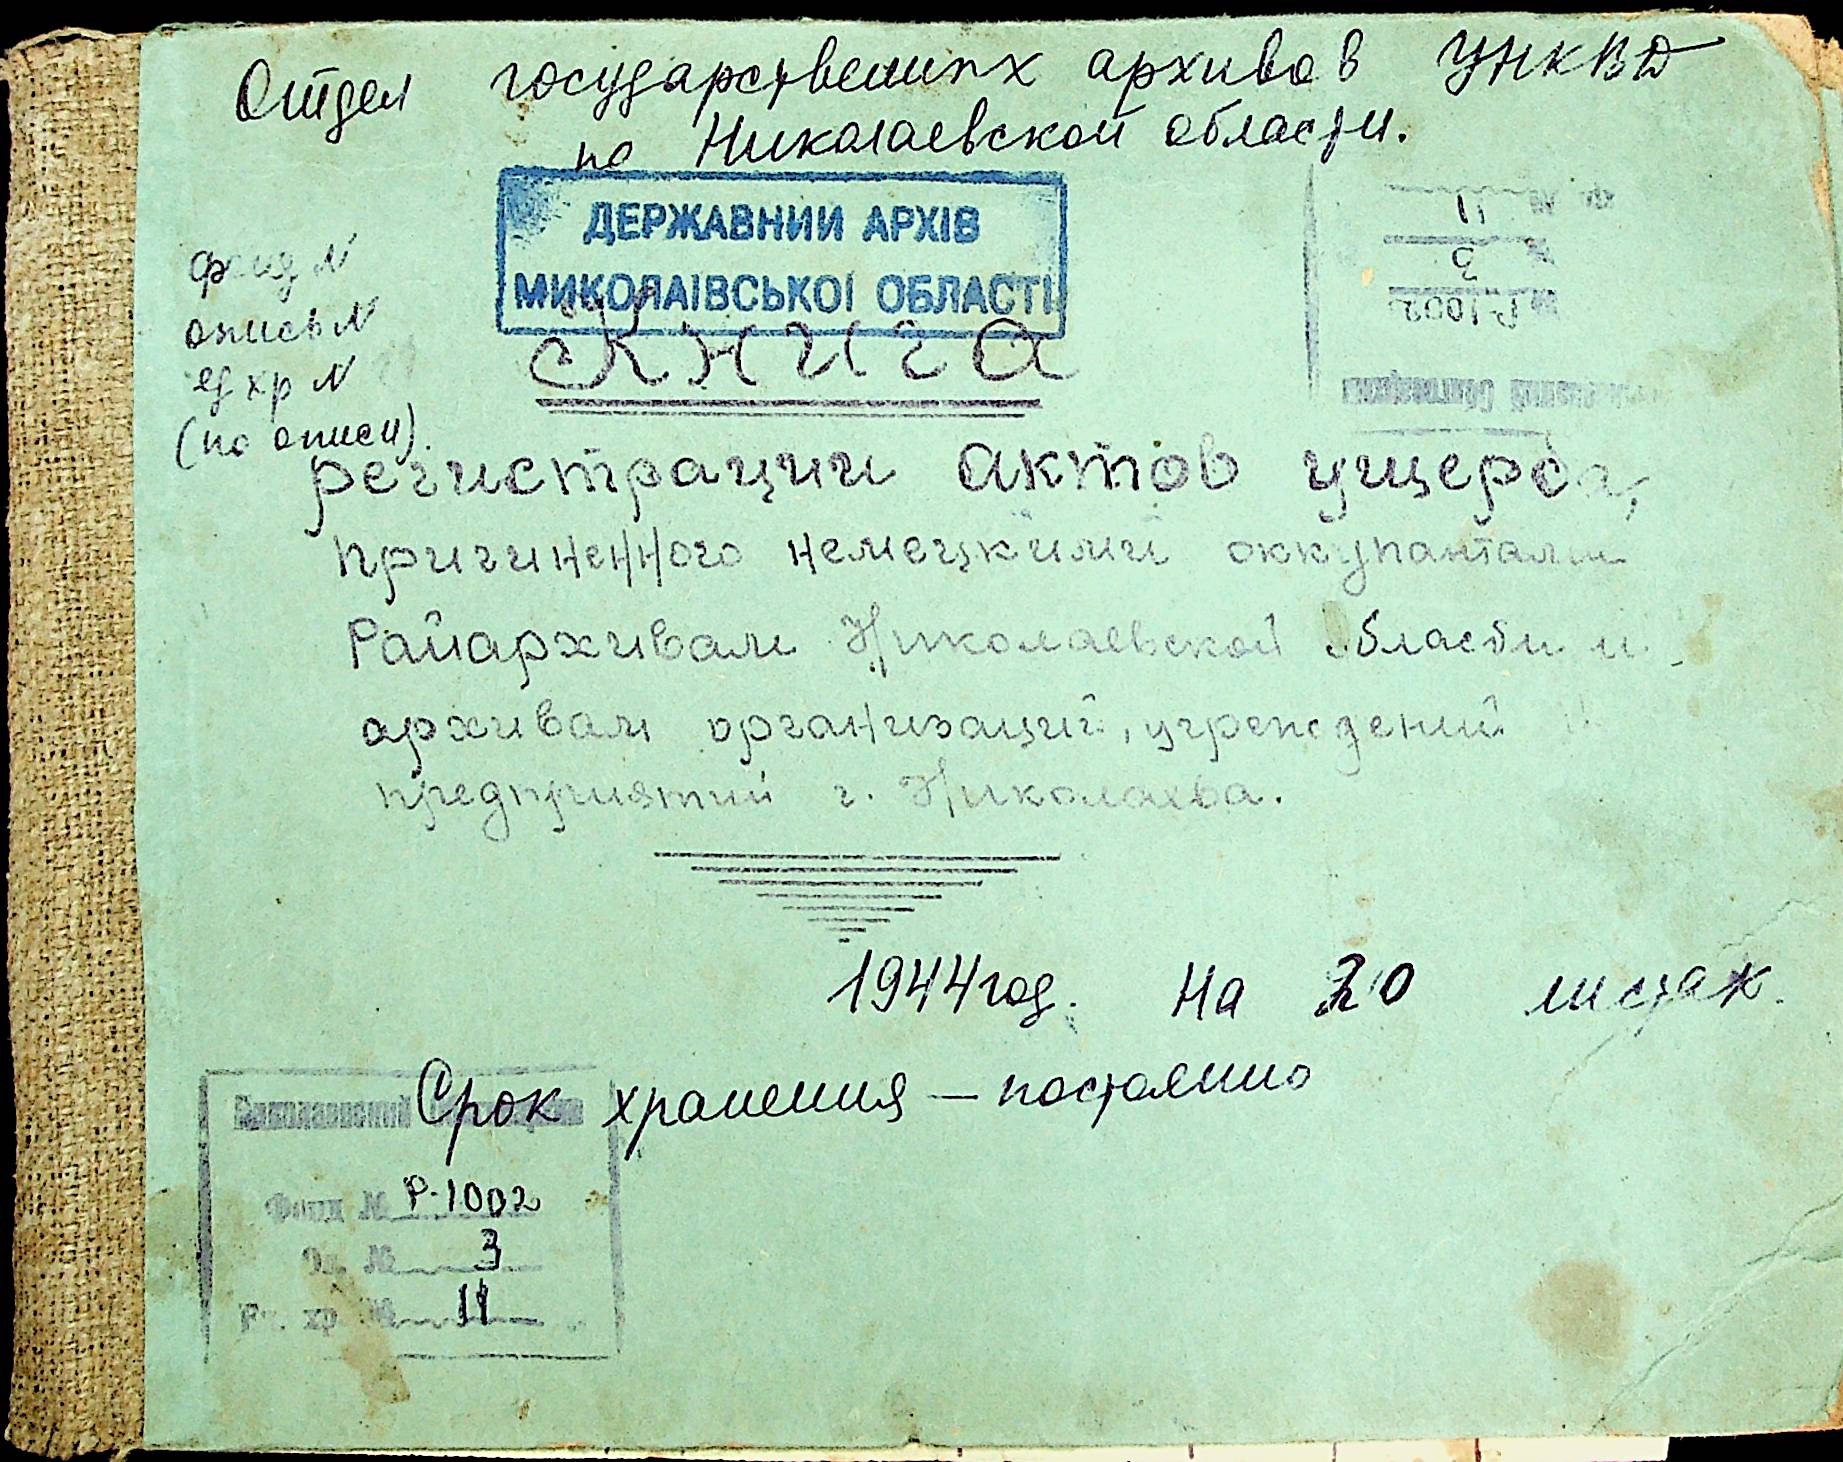 Отдел государственных архивов УНКВД
по Николаевской области.
ДЕРЖАВНИЙ АРХІВ
МИКОЛАЇВСЬКОЇ ОБЛАСТІ
фонд №
опись №
ед хр №
(по описи).
Книга
регистрации актов ущерба,
причиненного немецкими оккупантами
Райархивам Николаевской области и
архивам организаций, учреждений и
предприятий г. Николаева.
1944 год. На 20 листах.
Срок хранения — постоянно
Николаевский
Фонд № Р-1002
Оп. № 3
Ед. хр № 11
№ 11
№ 3
№ Р-1002